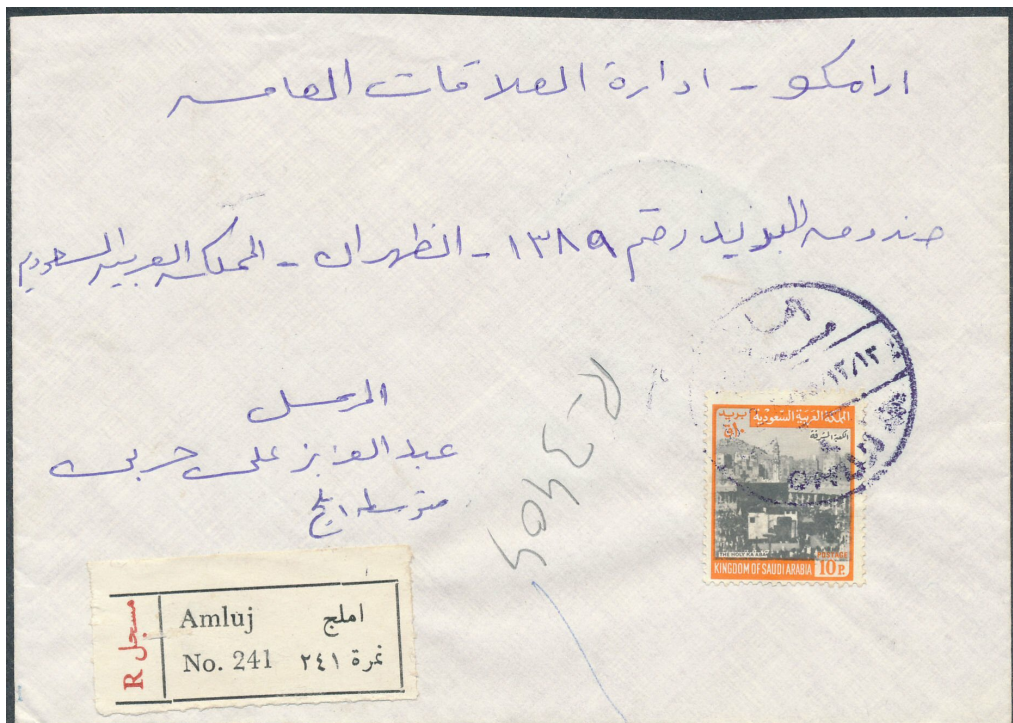 ارامكو - ادارة العلاقات العامه
صندوق البريد رقم ١٣٨٩ - الظهران - المملكه العربيه السعوديه
المرسل
عبد العزيز على حربي
متوسطه املج
المملكة العربية السعودية
بريد
الكعبة المشرفة
THE HOLY KAABA
POSTAGE
KINGDOM OF SAUDI ARABIA 10 P.
١٢/١٣
R مسجل
Amluj املج
No. 241 نمرة ٢٤١